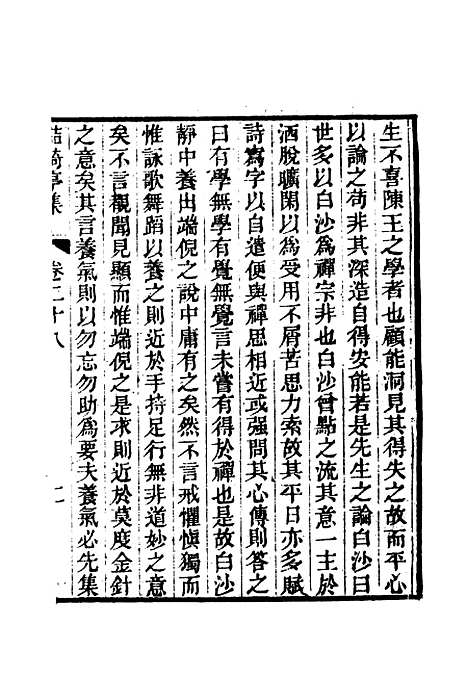 生不喜陳王之學者也顧能洞見其得失之故而平心
以論之苟非其深造自得安能若是先生之論白沙曰
世多以白沙爲禪宗非也白沙曾點之流其意一主於
洒脫曠閑以爲受用不屑苦思力索故其平日亦多賦
詩寫字以自遣便與禪思相近或強問其心傳則答之
曰有學無學有覺無覺言未嘗有得於禪也是故白沙
靜中養出端倪之說中庸有之矣然不言戒懼愼獨而
惟詠歌舞蹈以養之則近於手持足行無非道妙之意
矣不言覩聞見顯而惟端倪之是求則近於莫度金針
之意矣其言養氣則以勿忘勿助爲要夫養氣必先集
鮚埼亭集
卷二十八